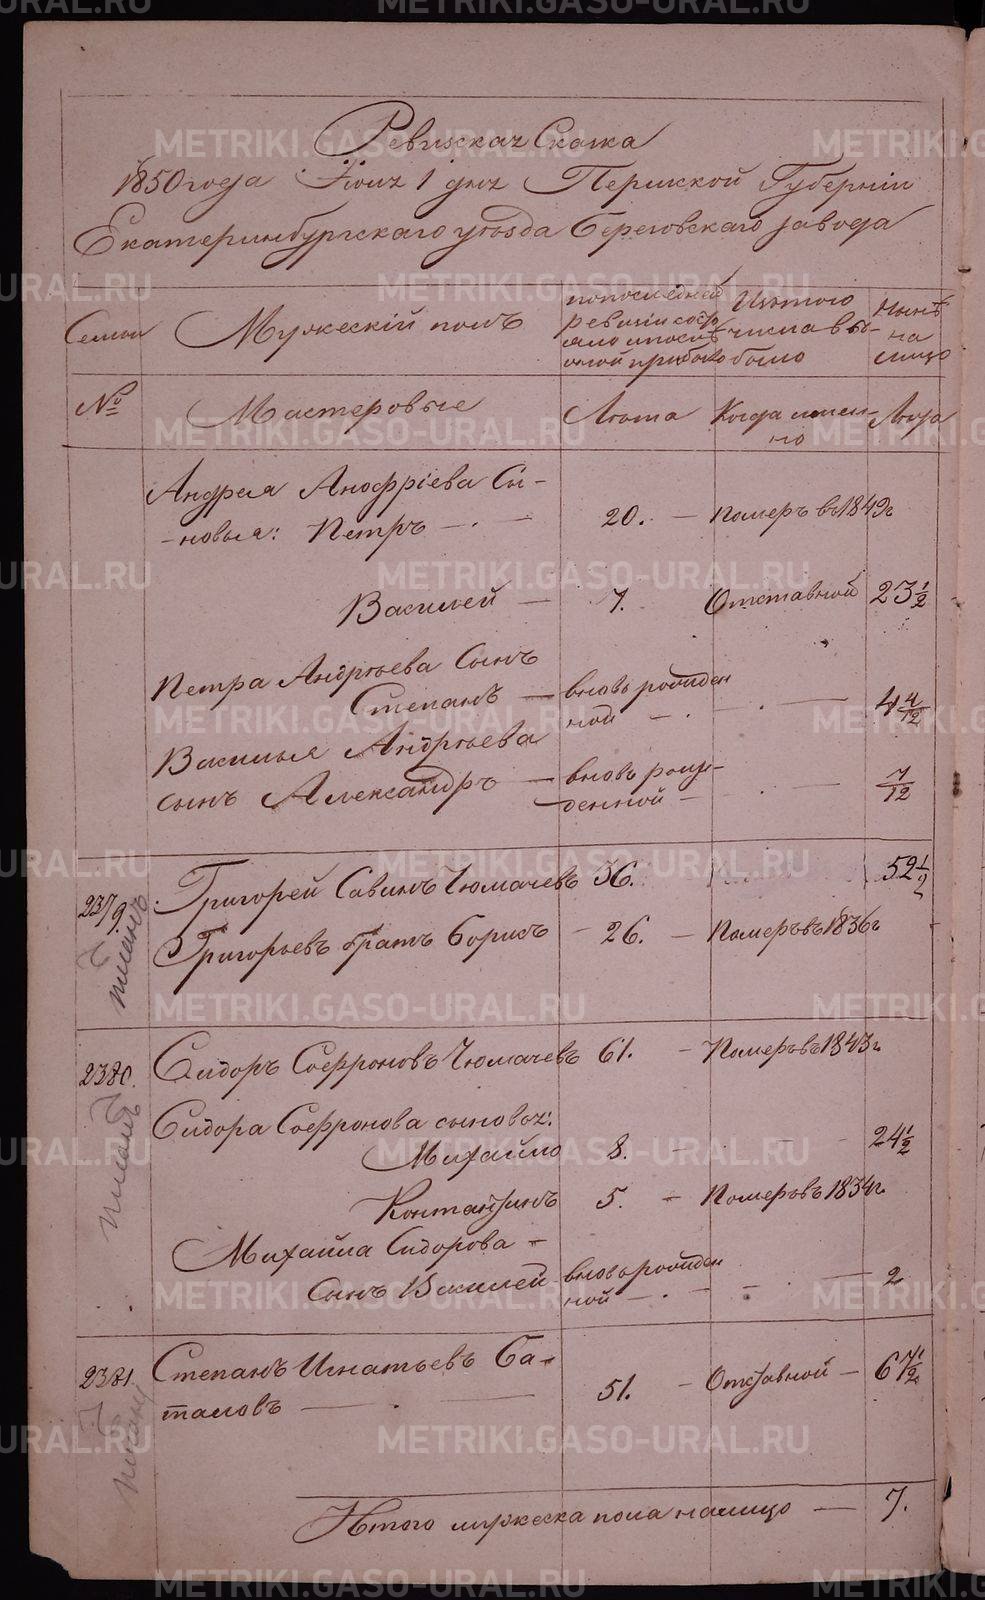 Ревижская Скаска
1850 года Июня 1 дня Пермской Губерніи
Екатеринбургскаго уѣзда Березовскаго завода
Семьи
Мужескій полъ
по последней
ревизіи состо
яло и после
оной прибыло
Изътого
числа выбы-
было
Нынѣ
на
лицо
№
Мастеровые
Лѣта
Когда имен-
но
Лѣта
Андрея Анофріева Сы-
-новья: Петръ — . —
20. —
померъ въ 1849г
Василей —
7.
Отставной
23 1/2
Петра Андрѣева Сынъ
Степанъ —
вновь рожден
ной — . — . —
4 4/12
Василья Андрѣева
сынъ Александръ —
вновь рож-
денной — . —
7/12
2379.
Григорей Савинъ Чюмачевъ
36.
52 1/2
Григорьевъ братъ Борисъ
- 26. —
Померъ въ 1836г
2380.
Сидоръ Софроновъ Чюмачевъ
61. —
Померъ въ 1843г
Сидора Софронова сыновья:
Михайло
8. — — —
24 1/2
Контантинъ
5. —
Померъ въ 1834г
Михайла Сидорова -
Сынъ Василей
вновь рожден
ной — . — . —
2
2381.
Степанъ Игнатьевъ Ба-
таловъ — . —
51. —
Отставной —
67 1/2
Итого мужеска пола налицо —
7.
METRIKI.GASO-URAL.RU